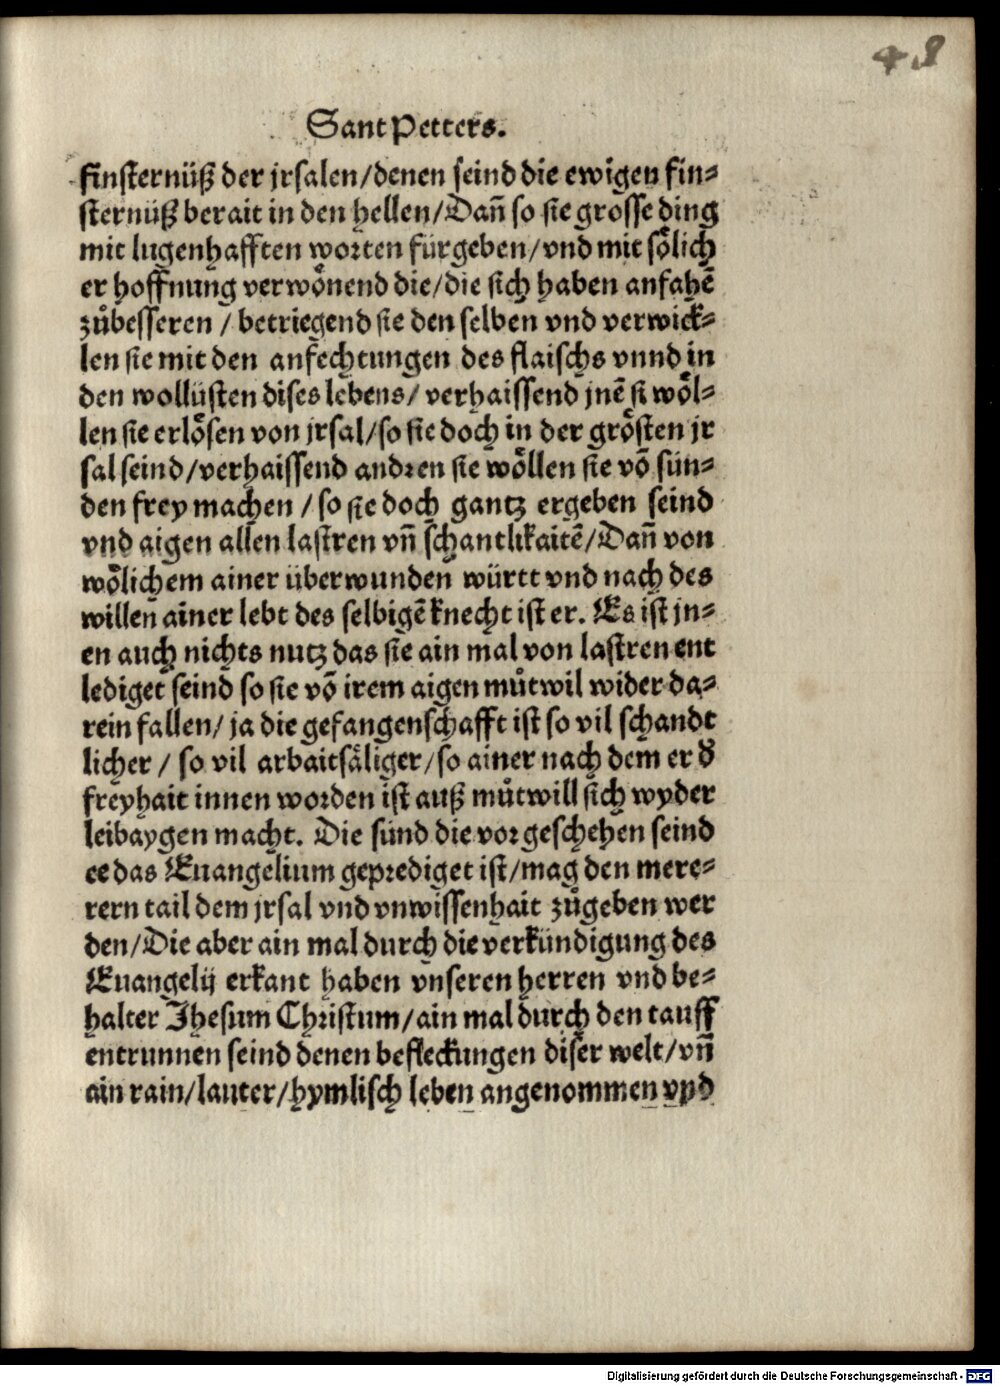 48
Sant Petters.
finsternüß der jrsalen/denen seind die ewigen fin⸗
sternüß berait in den hellen/Dañ so sie grosse ding
mit lugenhafften worten fürgeben/vnd mit sölich
er hoffnung verwönend die/die sich haben anfahē
zůbesseren / betriegend sie den selben vnd verwick⸗
len sie mit den anfechtungen des flaischs vnnd in
den wollüsten dises lebens/ verhaissend jnē si wöl⸗
len sie erlösen von jrsal/so sie doch in der grösten jr
sal seind/verhaissend andren sie wöllen sie vō sün⸗
den frey machen / so sie doch gantz ergeben seind
vnd aigen allen lastren vñ schantlikaitē/Dañ von
wölichem ainer überwunden württ vnd nach des
willen ainer lebt des selbigē knecht ist er. Es ist jn⸗
en auch nichts nutz das sie ain mal von lastren ent
lediget seind so sie vō irem aigen můtwil wider da⸗
rein fallen/ ja die gefangenschafft ist so vil schandt
licher / so vil arbaitsäliger/so ainer nach dem er d̕
freyhait innen worden ist auß můtwill sich wyder
leibaygen macht. Die sünd die vor geschehen seind
ee das Euangelium geprediget ist/mag den mere⸗
rern tail dem jrsal vnd vnwissenhait zůgeben wer
den/Die aber ain mal durch die verkündigung des
Euangelij erkant haben vnseren herren vnd be⸗
halter Jhesum Christum/ain mal durch den tauff
entrunnen seind denen befleckungen diser welt/vñ
ain rain/lauter/hymlisch leben angenommen vnd
Digitalisierung gefördert durch die Deutsche Forschungsgemeinschaft - DFG